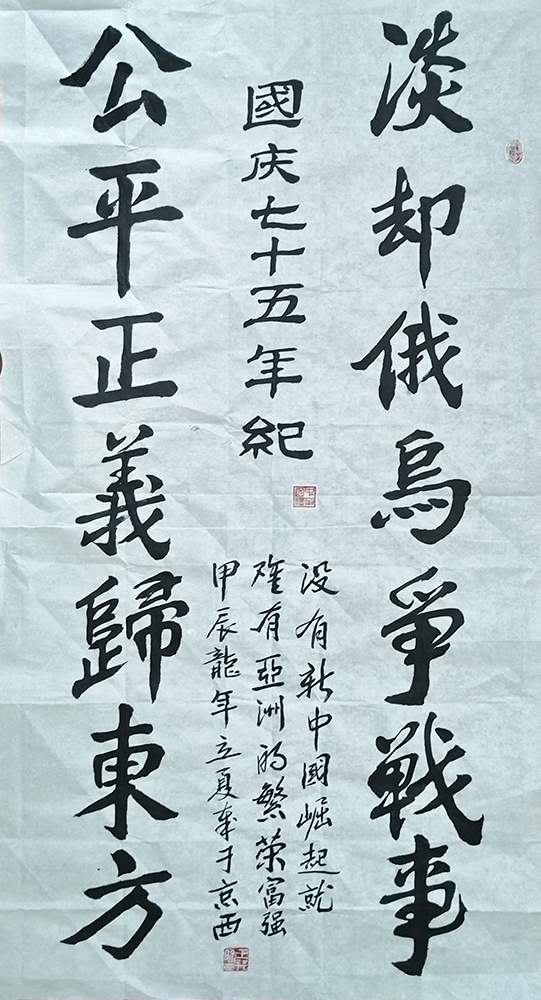 淡却俄烏爭戦事
國庆七十五年纪
没有新中國崛起就
难有亞洲的繁荣富强
甲辰龍年立夏
于京西
公平正義歸東方